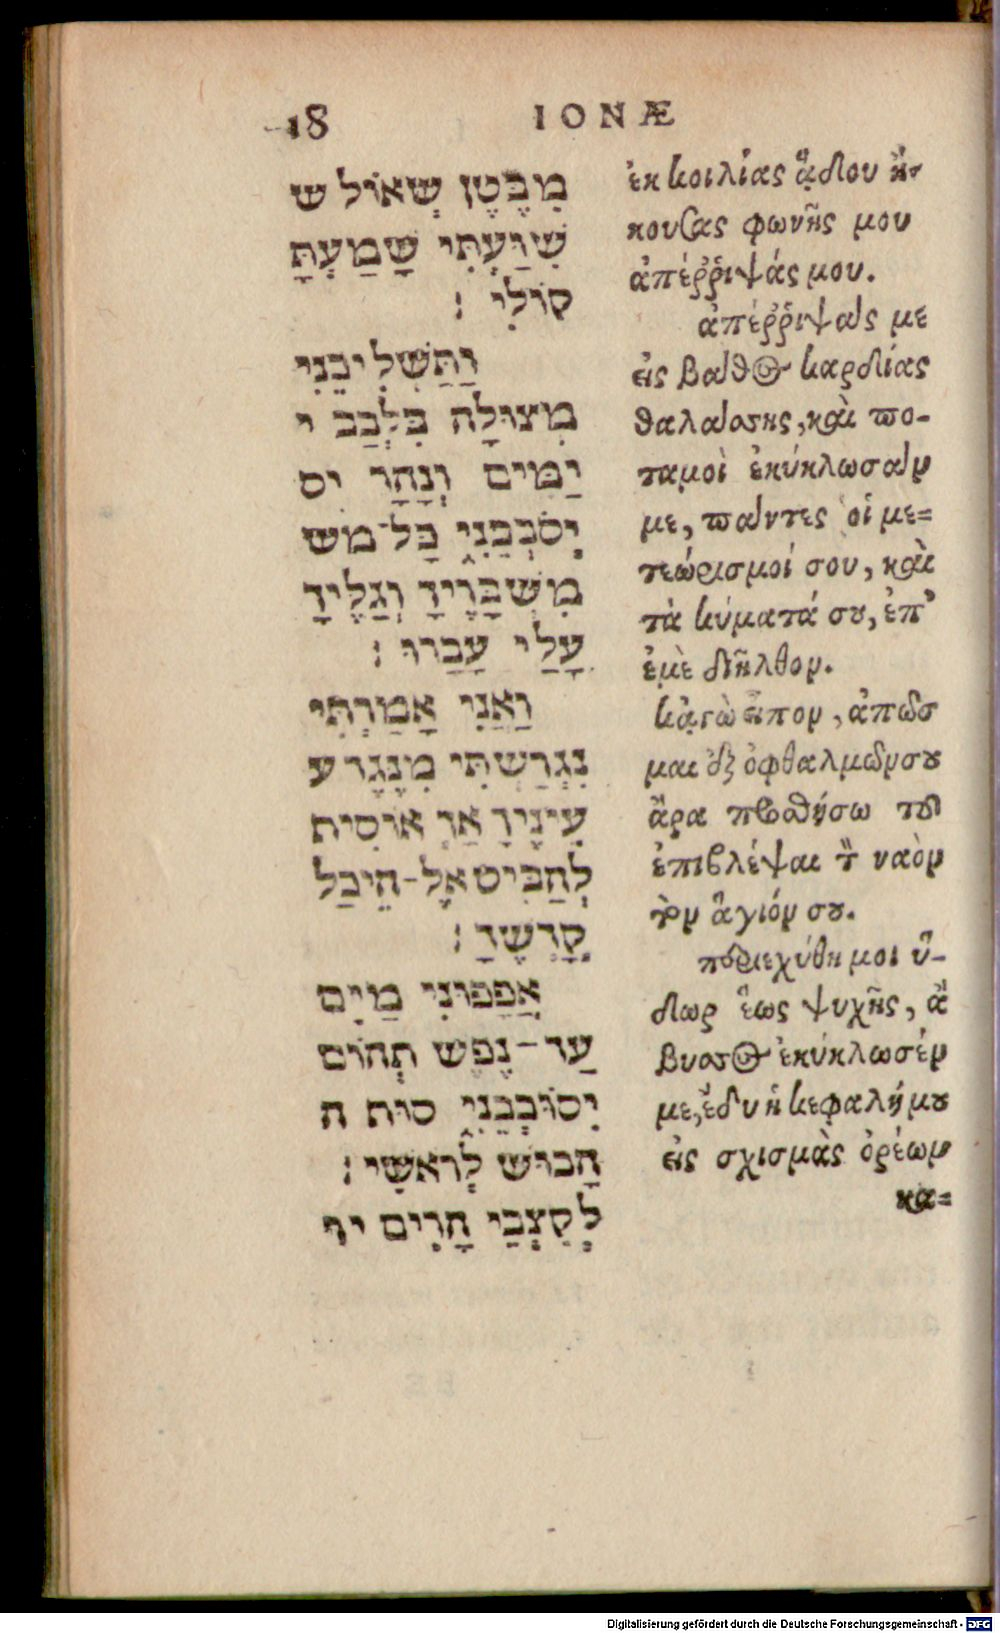 18 IONÆ
מִבֶּטֶן שְׁאוֹל ש
שִׁוַּעְתִּי שָׁמַעְתָּ
קוֹלִי :
וַתַּשְׁלִיכֵנִי
מְצוּלָה בִּלְבַב י
יַמִּים וְנָהָר יס
יְסֹבְבֵנִי כָּל־מש
מִשְׁבָּרֶיךָ וְגַלֶּיךָ
עָלַי עָבָרוּ :
וַאֲנִי אָמַרְתִּי
נִגְרַשְׁתִּי מִנֶּגֶד ע
עֵינֶיךָ אַךְ אוֹסִיף
לְהַבִּיט אֶל־הֵיכַל
קָדְשֶׁךָ :
אֲפָפוּנִי מַיִם
עַד־נֶפֶשׁ תְּהוֹם
יְסוֹבְבֵנִי סוּף ח
חָבוּשׁ לְרֹאשִׁי :
לְקִצְבֵי הָרִים יר
ἐκ κοιλίας ᾅδου ἤ-
κουσας φωνῆς μου
ἀπέῤῥιψάς μου.
ἀπέῤῥιψας με
εἰς βάθος καρδίας
θαλάσσης, καὶ πο-
ταμοὶ ἐκύκλωσαν
με, πάντες οἱ με=
τεώρισμοί σου, καὶ
τὰ κύματά σου, ἐπ'
ἐμὲ διῆλθον.
κᾀγὼ εἶπον, ἀπῶσ
μαι ἐξ ὀφθαλμῶν σου
ἆρα προσθήσω τοῦ
ἐπιβλέψαι τὸν ναὸν
τὸν ἅγιόν σου.
περιεχύθη μοι ὕ-
δωρ ἕως ψυχῆς, ἄ
βυσσος ἐκύκλωσέν
με, ἔδυ ἡ κεφαλή μου
εἰς σχισμὰς ὀρέων
κα=
Digitalisierung gefördert durch die Deutsche Forschungsgemeinschaft - DFG